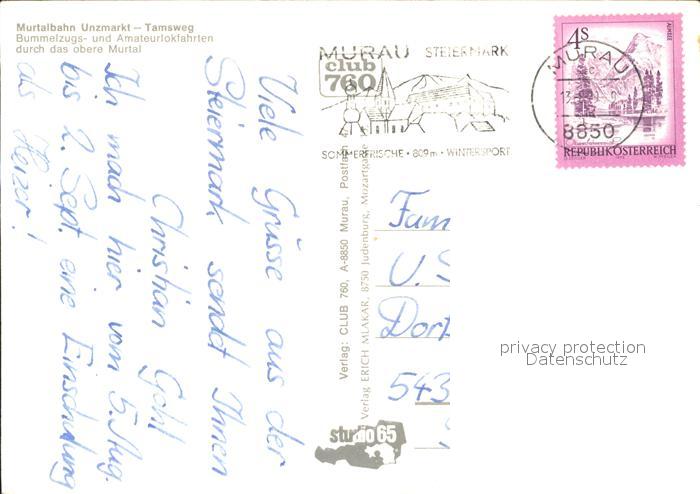 Murtalbahn Unzmarkt – Tamsweg
Bummelzugs- und Amateurlokfahrten
durch das obere Murtal
Viele Grüsse aus der
Steiermark sendet Ihnen
Christian Gohl
Ich mach hier vom 5. Aug.
bis 2. Sept. eine Einschulung
als Heizer!
MURAU STEIERMARK
club
760
SOMMERFRISCHE · 809m · WINTERSPORT
MURAU
8850
4s
ALMSEE
REPUBLIK ÖSTERREICH
Verlag: CLUB 760, A-8850 Murau, Postfach
Verlag ERICH MLAKAR, 8750 Judenburg, Mozartgasse
studio 65
Fam
U.
Dort
543
privacy protection
Datenschutz